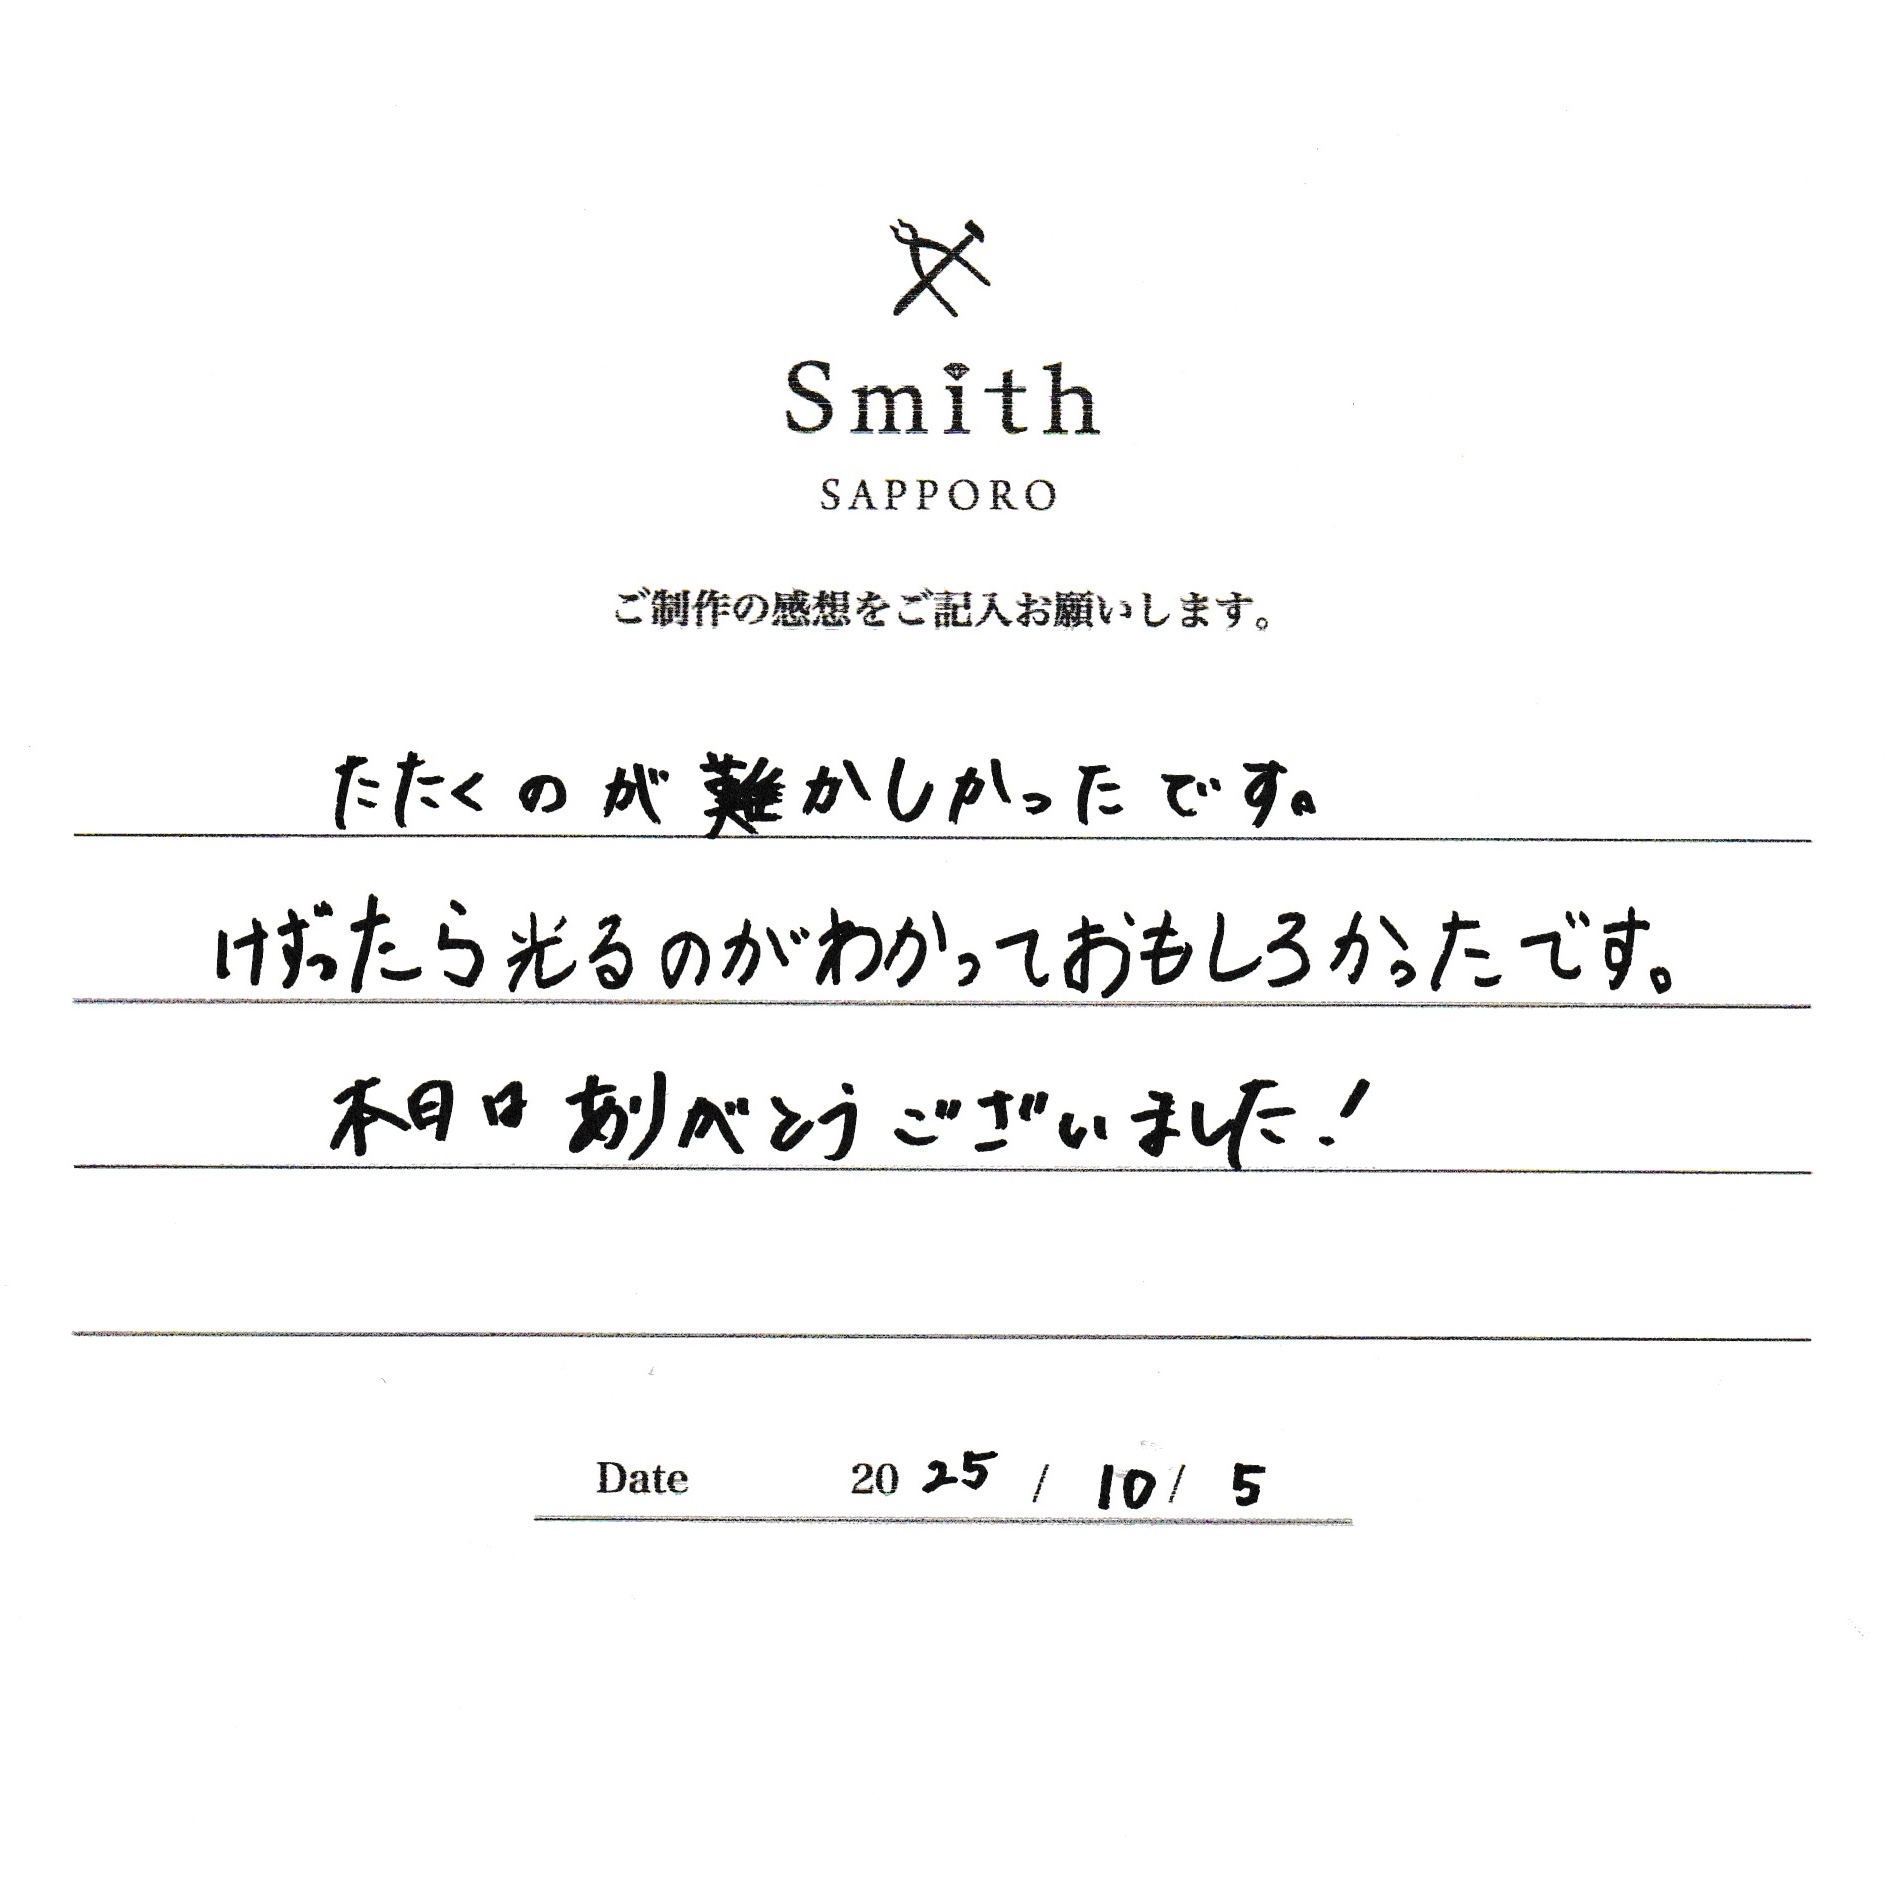 Smith
SAPPORO
ご制作の感想をご記入お願いします。
たたくのが難かしかったです。
けずったら光るのがわかっておもしろかったです。
本日はありがとうございました!
Date 2025 / 10 / 5